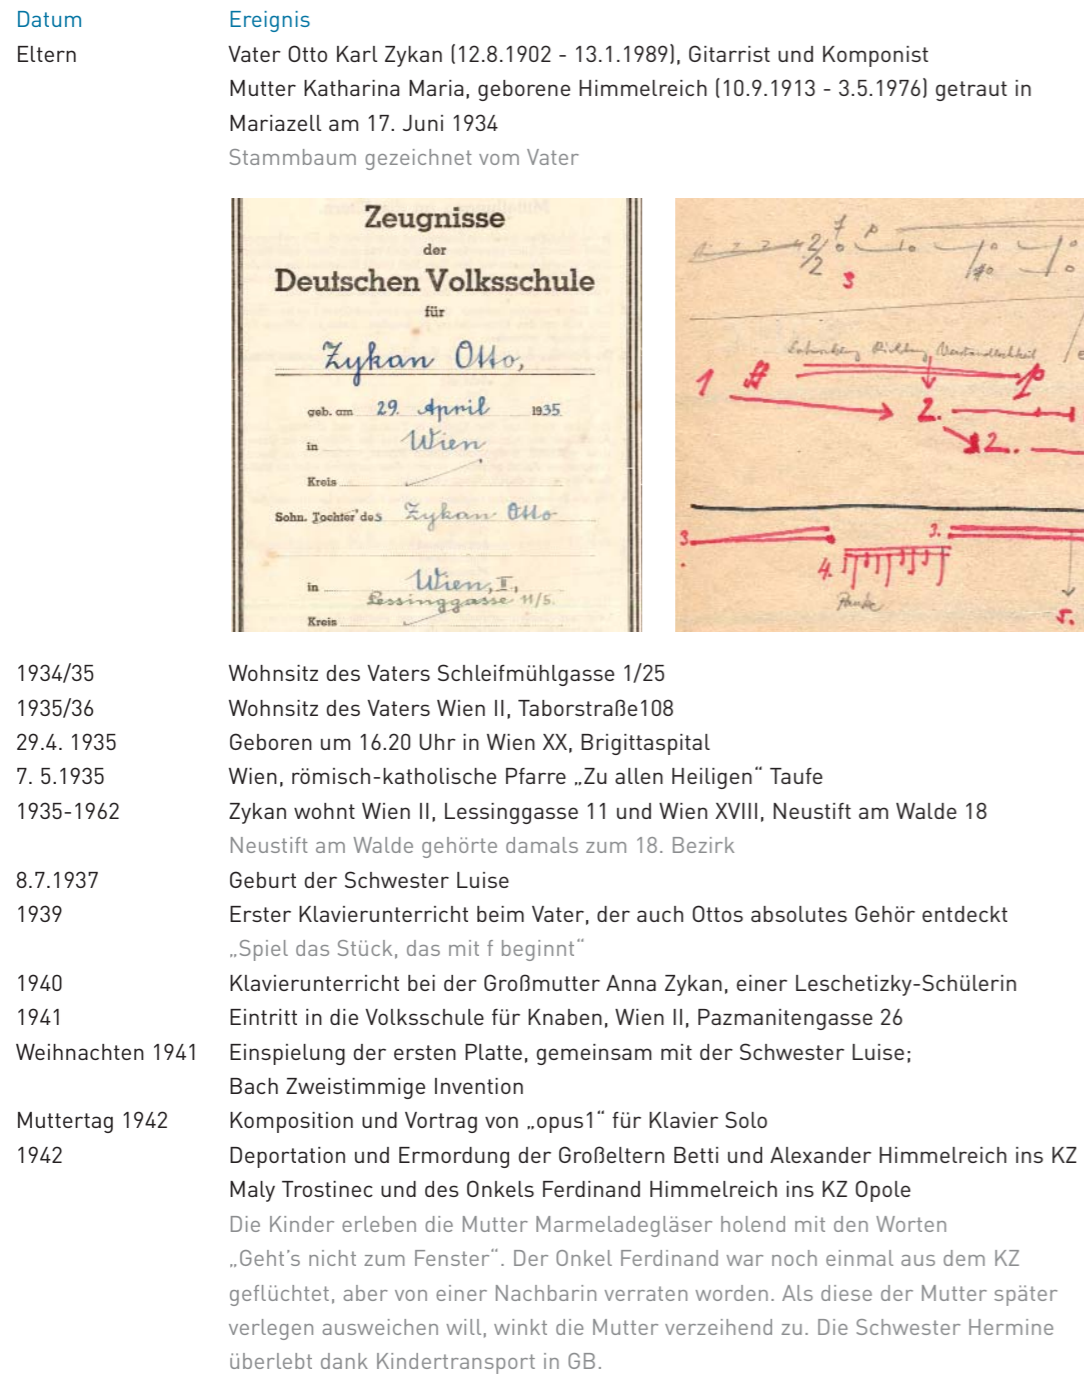 Datum Ereignis
Eltern Vater Otto Karl Zykan (12.8.1902 - 13.1.1989), Gitarrist und Komponist
Mutter Katharina Maria, geborene Himmelreich (10.9.1913 - 3.5.1976) getraut in
Mariazell am 17. Juni 1934
Stammbaum gezeichnet vom Vater
Zeugnisse
der
Deutschen Volksschule
für
Zykan Otto,
geb. am 29. April 1935
in Wien
Kreis
Sohn. Tochter des Zykan Otto
in Wien, II.,
Lessinggasse 11/5.
Kreis
2/2
7 p
3
Verständlichkeit
1 ff p
2.
2.
3. 3.
4.
Pauke
5.
1934/35 Wohnsitz des Vaters Schleifmühlgasse 1/25
1935/36 Wohnsitz des Vaters Wien II, Taborstraße108
29.4. 1935 Geboren um 16.20 Uhr in Wien XX, Brigittaspital
7. 5.1935 Wien, römisch-katholische Pfarre „Zu allen Heiligen“ Taufe
1935-1962 Zykan wohnt Wien II, Lessinggasse 11 und Wien XVIII, Neustift am Walde 18
Neustift am Walde gehörte damals zum 18. Bezirk
8.7.1937 Geburt der Schwester Luise
1939 Erster Klavierunterricht beim Vater, der auch Ottos absolutes Gehör entdeckt
„Spiel das Stück, das mit f beginnt“
1940 Klavierunterricht bei der Großmutter Anna Zykan, einer Leschetizky-Schülerin
1941 Eintritt in die Volksschule für Knaben, Wien II, Pazmanitengasse 26
Weihnachten 1941 Einspielung der ersten Platte, gemeinsam mit der Schwester Luise;
Bach Zweistimmige Invention
Muttertag 1942 Komposition und Vortrag von „opus1“ für Klavier Solo
1942 Deportation und Ermordung der Großeltern Betti und Alexander Himmelreich ins KZ
Maly Trostinec und des Onkels Ferdinand Himmelreich ins KZ Opole
Die Kinder erleben die Mutter Marmeladegläser holend mit den Worten
„Geht’s nicht zum Fenster“. Der Onkel Ferdinand war noch einmal aus dem KZ
geflüchtet, aber von einer Nachbarin verraten worden. Als diese der Mutter später
verlegen ausweichen will, winkt die Mutter verzeihend zu. Die Schwester Hermine
überlebt dank Kindertransport in GB.